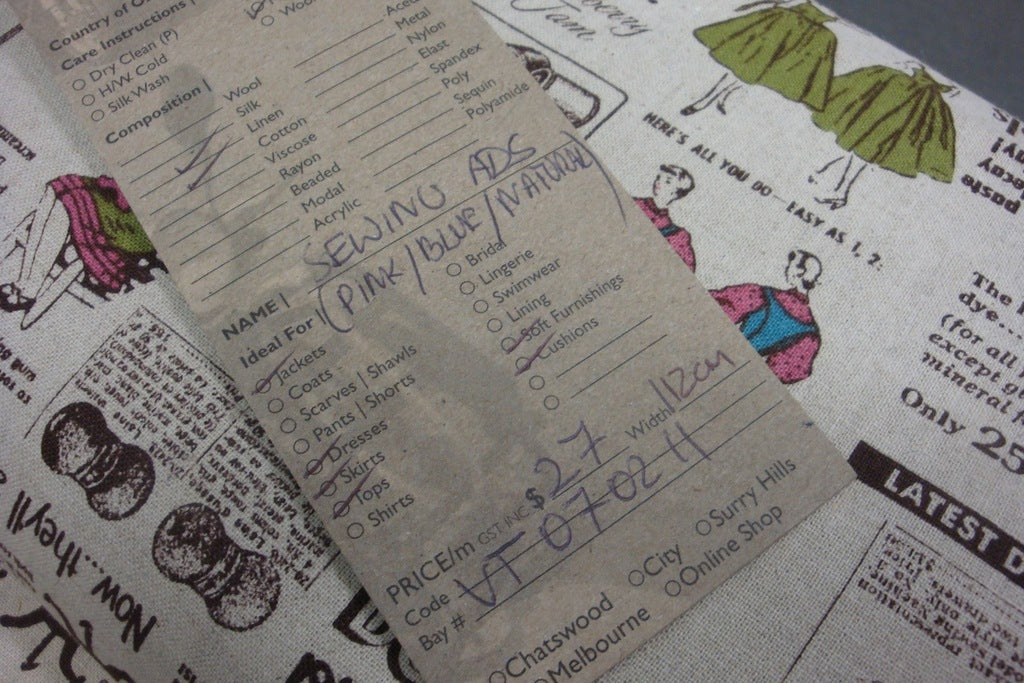 Country of O
Care Instructions |
Dry Clean (P)
H/W Cold
Silk Wash
Composition |
Wool
Silk
Linen
Cotton
Viscose
Rayon
Beaded
Modal
Acrylic
Metal
Nylon
Elast
Spandex
Poly
Sequin
Polyamide
NAME | SEWING ADS
(PINK/BLUE/NATURAL)
Ideal For |
Jackets
Coats
Scarves | Shawls
Pants | Shorts
Dresses
Skirts
Tops
Shirts
Bridal
Lingerie
Swimwear
Lining
Soft Furnishings
Cushions
PRICE/m GST INC $27 Width 112cm
Code VF 070211
Bay #
Chatswood City Surry Hills
Melbourne Online Shop
Jam.
HERE'S ALL YOU DO—EASY AS 1, 2:
The
dye...
(for all
except
mineral
Only 25
LATEST D
Now...they'll